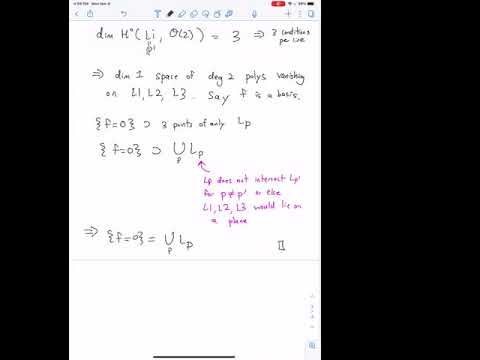 dim H⁰(Li, O(2)) = 3 ⇒ 3 conditions per line
P¹
⇒ dim 1 space of deg 2 polys vanishing
on L1, L2, L3. Say f is a basis.
{f=0} ⊃ 3 points of any Lp
{f=0} ⊃ ∪ Lp
p
Lp does not intersect Lp'
for p≠p' or else
L1, L2, L3 would lie on
a plane
⇒ {f=0} = ∪ Lp
p